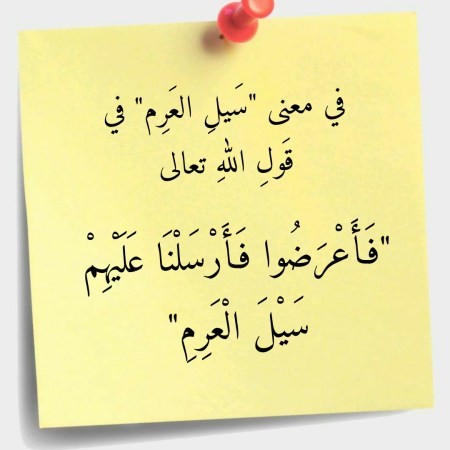 في معنى "سَيلِ العَرِم" في
قَولِ اللهِ تعالى
"فَأَعْرَضُوا فَأَرْسَلْنَا عَلَيْهِمْ
سَيْلَ الْعَرِمِ"